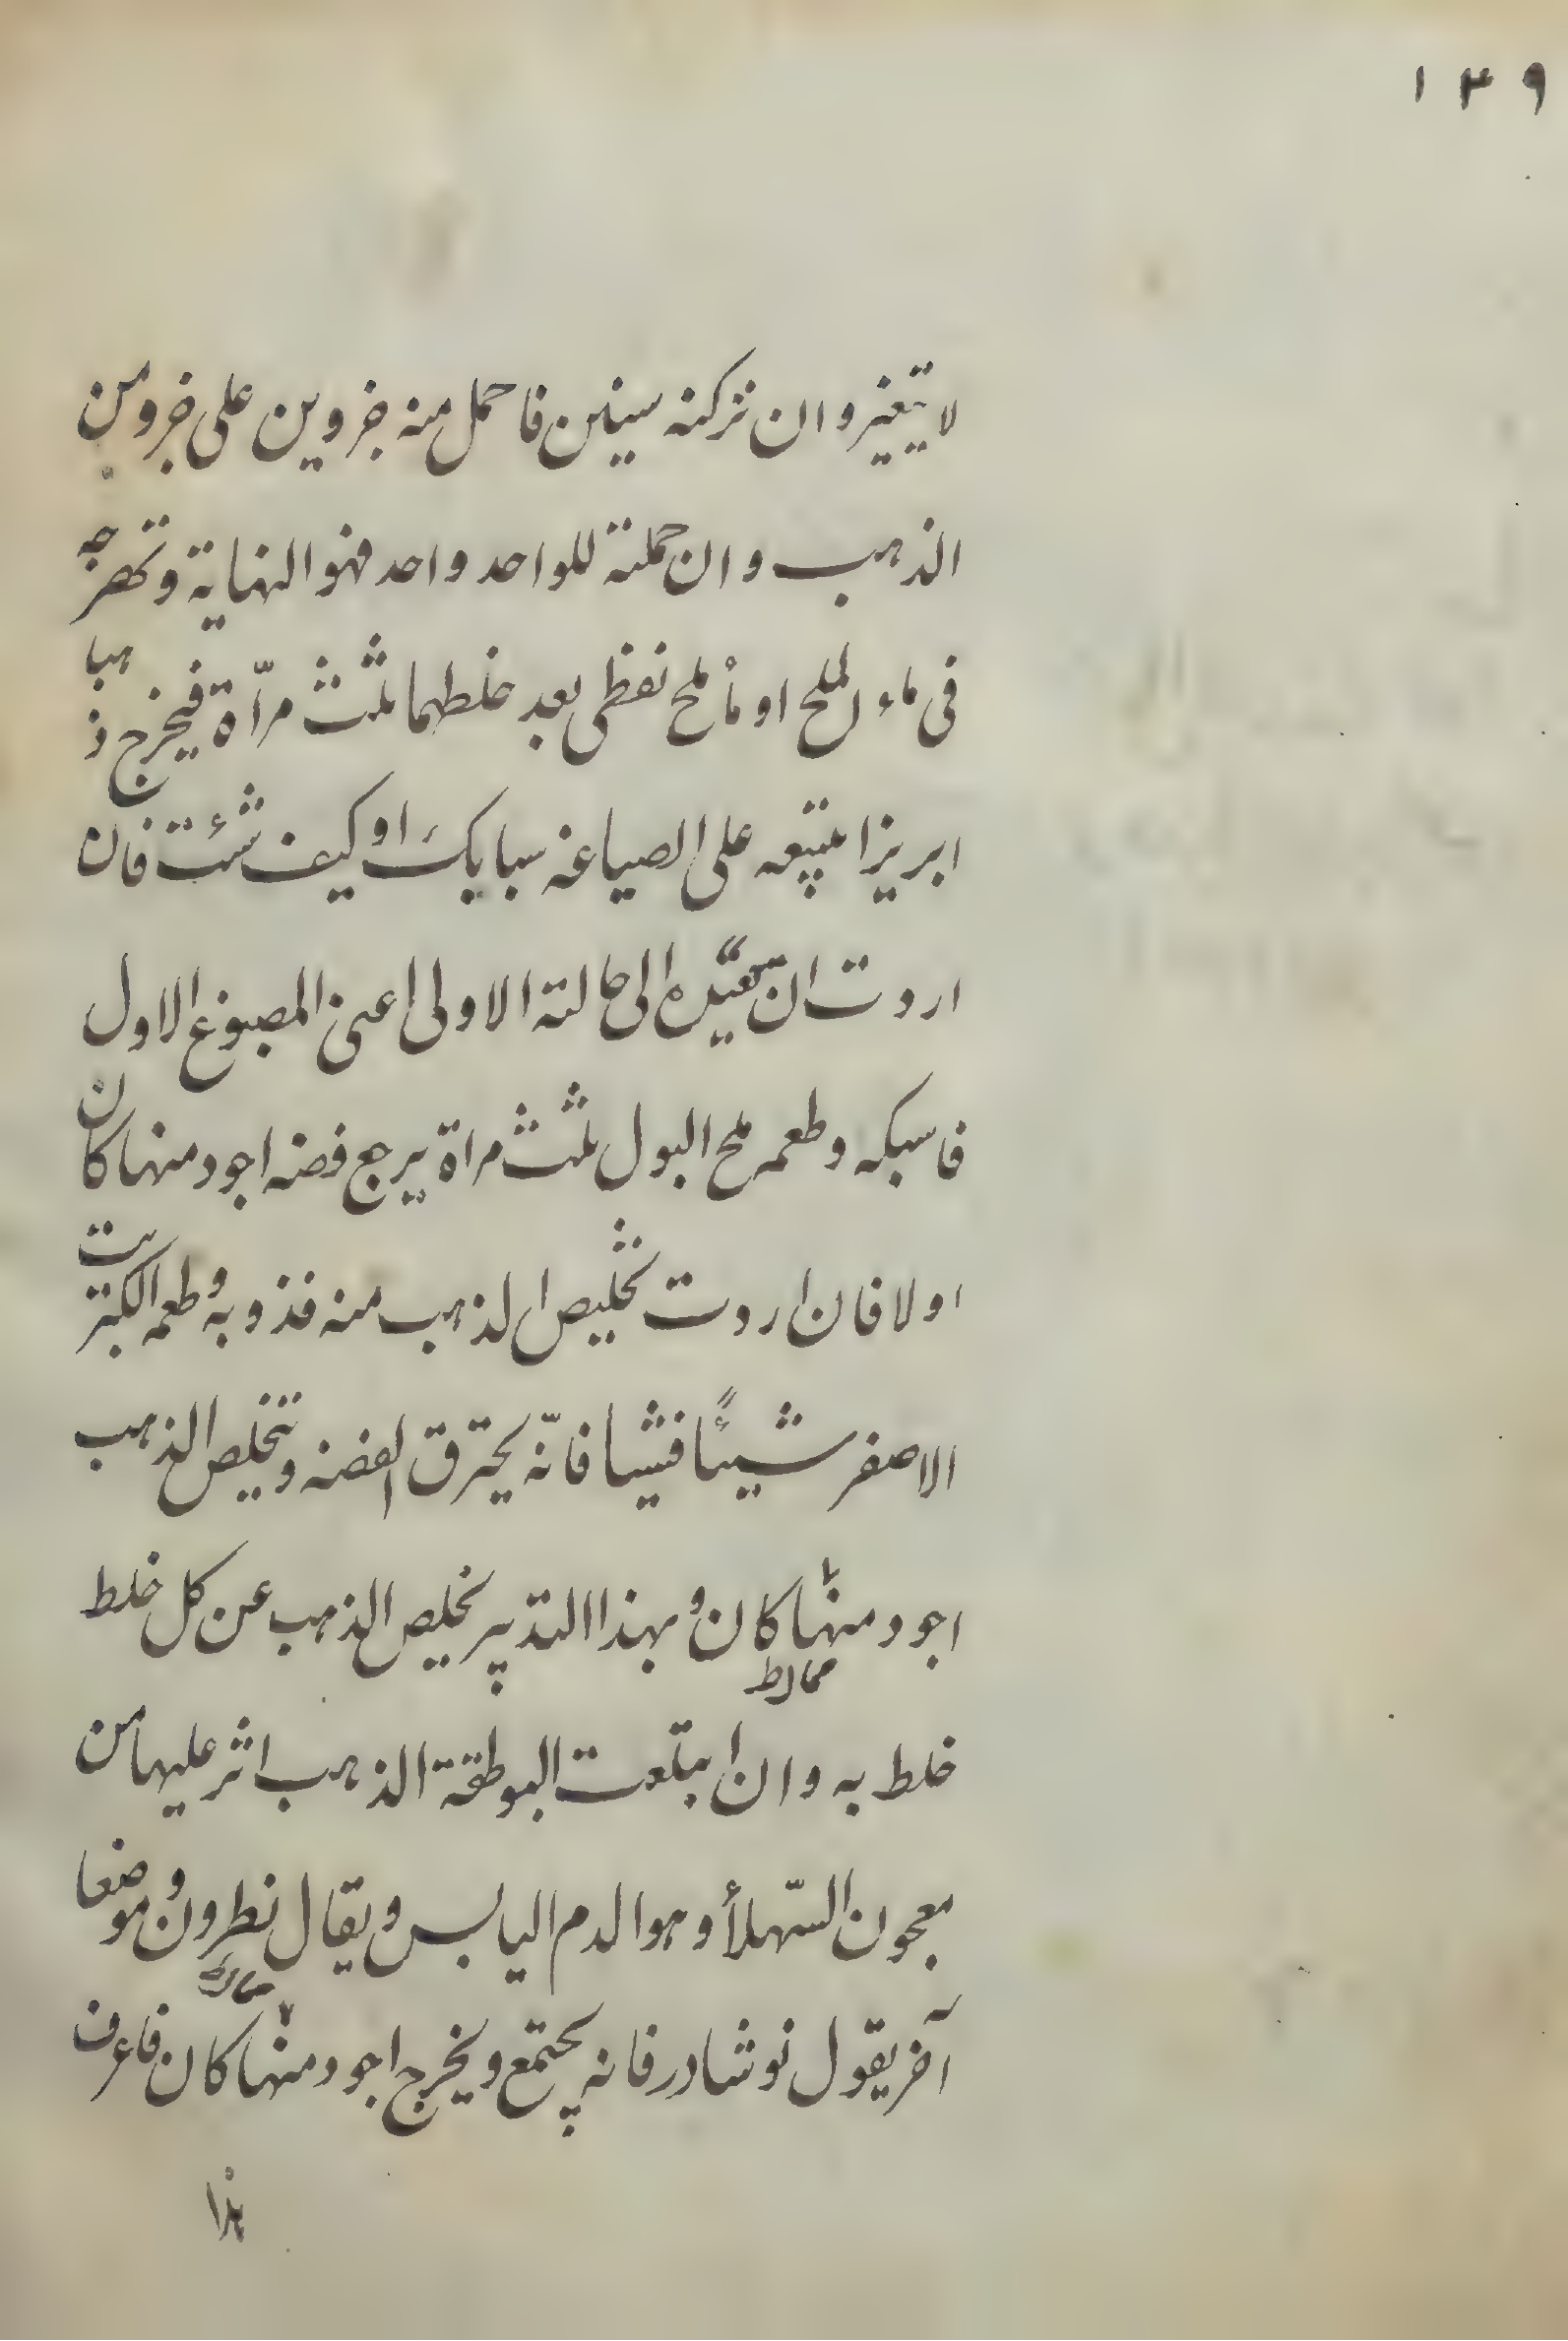 ١٣٩
لا يتغير وان تركته سنين فاحمل منه جزوين على جزو من
الذهب وان حملته للواحد واحد فهو النهاية وتهرجه
فى ماء الملح او ماء ملح نفطى بعد خلطهما ثلث مراة فيخرج ذهبا
ابريزا بتيعه على الصياغه سبايك او كيف شئت فان
اردت ان تغيّره الى حالته الاولى اعنى المصبوغ الاول
فاسبكه وطعمه ملح البول ثلث مراة يرجع فضه اجود منها كان
اولا فان اردت تخليص الذهب منه فذوبه وطعمه الكبريت
الاصفر شيئًا فشيا فانّه يحترق الفضه ويتخلص الذهب
اجود منها كان وبهذا التدبير تخليص الذهب عن كل خلط
مما رط
خلط به وان ابتلعت البوطقة الذهب اثر عليها من
معجون السّهلأ وهو الدم اليابس ويقال نطرون وموضعا
آخر يقول نوشادر فانه يجتمع ويخرج اجود منها كان فاعرف
هذا